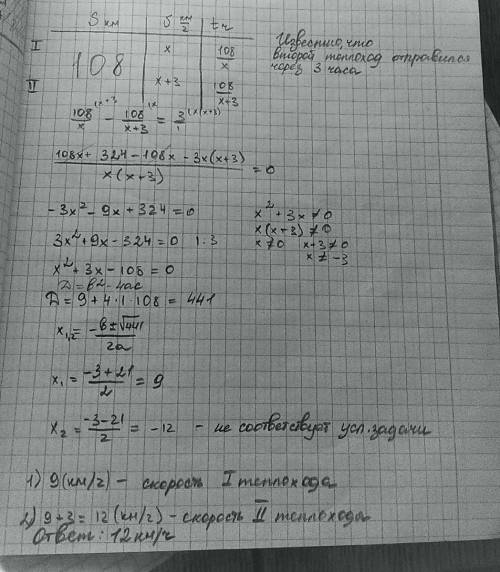 S км v км/ч t ч
I x 108/x
108
II x+3 108/x+3
Известно, что
второй теплоход отправился
через 3 часа
108/x (x+3 - 108/x+3 (x = 3/1 (x(x+3)
108x + 324 - 108x - 3x(x+3) / x(x+3) = 0
-3x² - 9x + 324 = 0
3x² + 9x - 324 = 0 1:3
x² + 3x - 108 = 0
D = b² - 4ac
D = 9 + 4·1·108 = 441
x² + 3x ≠ 0
x(x+3) ≠ 0
x ≠ 0 x+3 ≠ 0
x ≠ -3
x₁,₂ = -b ± √441 / 2a
x₁ = -3+21 / 2 = 9
x₂ = -3-21 / 2 = -12 - не соответствует усл. задачи
1) 9 (км/ч) - скорость I теплохода
2) 9+3 = 12 (км/ч) - скорость II теплохода
Ответ: 12 км/ч